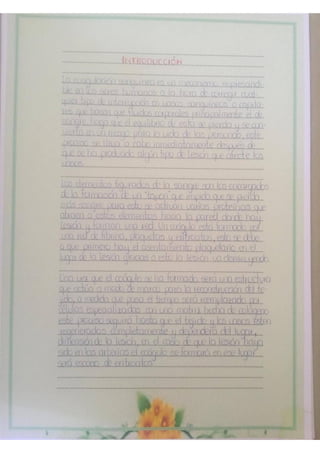 INTRODUCCIÓN
La coagulación sanguínea es un mecanismo imprescindi-
ble en los seres humanos a la hora de corregir cual-
quier tipo de interrupción en vasos sanguíneos o capila-
res que hacen que fluidos corporales principalmente el de
sangre, haga que el equilibrio de esta se pierda y se con-
vierta en un riesgo para la vida de las personas, este
proceso se lleva a cabo inmediatamente después de
que se ha producido algún tipo de lesión que afecte los
vasos.
Los elementos figurados de la sangre son los encargados
de la formación de un "tapón" que impida que se pierda
más sangre, para esto se activan varias proteínas que
atraen a estos elementos hacia la pared donde hay
lesión y forman una red. Un coágulo está formado por
una red de fibrina, plaquetas y eritrocitos, esto se debe
a que primero hay el asentamiento plaquetario en el
lugar de la lesión gracias a esto la lesión va disminuyendo.
Una vez que el coágulo se ha formado, será una estructura
que actúa a modo de marco para la reconstrucción del te-
jido, a medida que pasa el tiempo será reemplazado por
células especializadas con una matriz hecha de colágeno
este proceso seguirá hasta que el tejido y los vasos estén
regenerados completamente y dependerá del lugar y
dimensión de la lesión, en el caso de que la lesión haya
sido en las arterias el coágulo se formará en ese lugar
será escaso de eritrocitos.